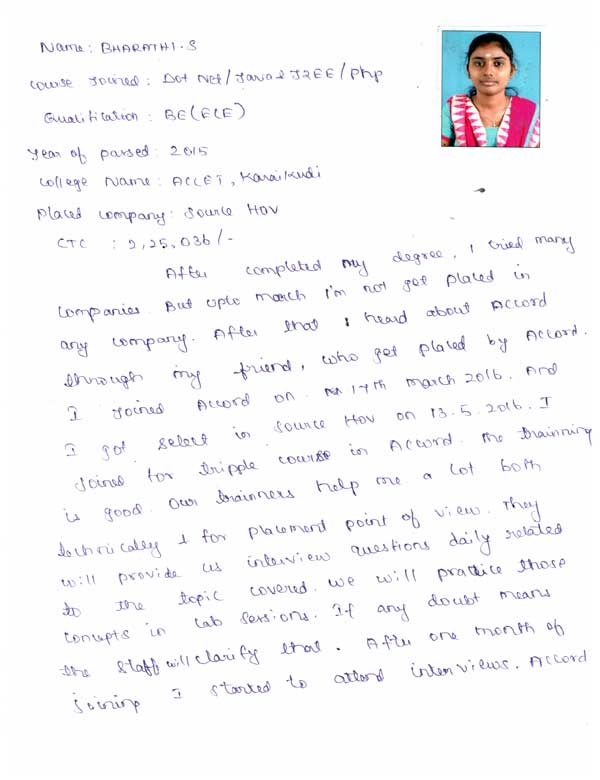 Name: BHARATHI.S
Course Joined: Dot Net/Java&J2EE/Php
Qualification: BE(ECE)
Year of passed: 2015
College Name: ACCET, Karaikudi
Placed company: Source HOV
CTC : 2,25,036/-
After completed my degree, I tried many
companies. But upto march I'm not get placed in
any company. After that I heard about Accord
through my friend, who get placed by Accord.
I joined Accord on 17th march 2016. And
I got select in Source Hov on 13.5.2016. I
Joined for tripple course in Accord. The trainning
is good. Our trainners help me a lot both
technically & for placement point of view. They
will provide us interview questions daily related
to the topic covered. We will practice those
concepts in lab sessions. If any doubt means
the staff will clarify that. After one month of
joining I started to attend interviews. Accord